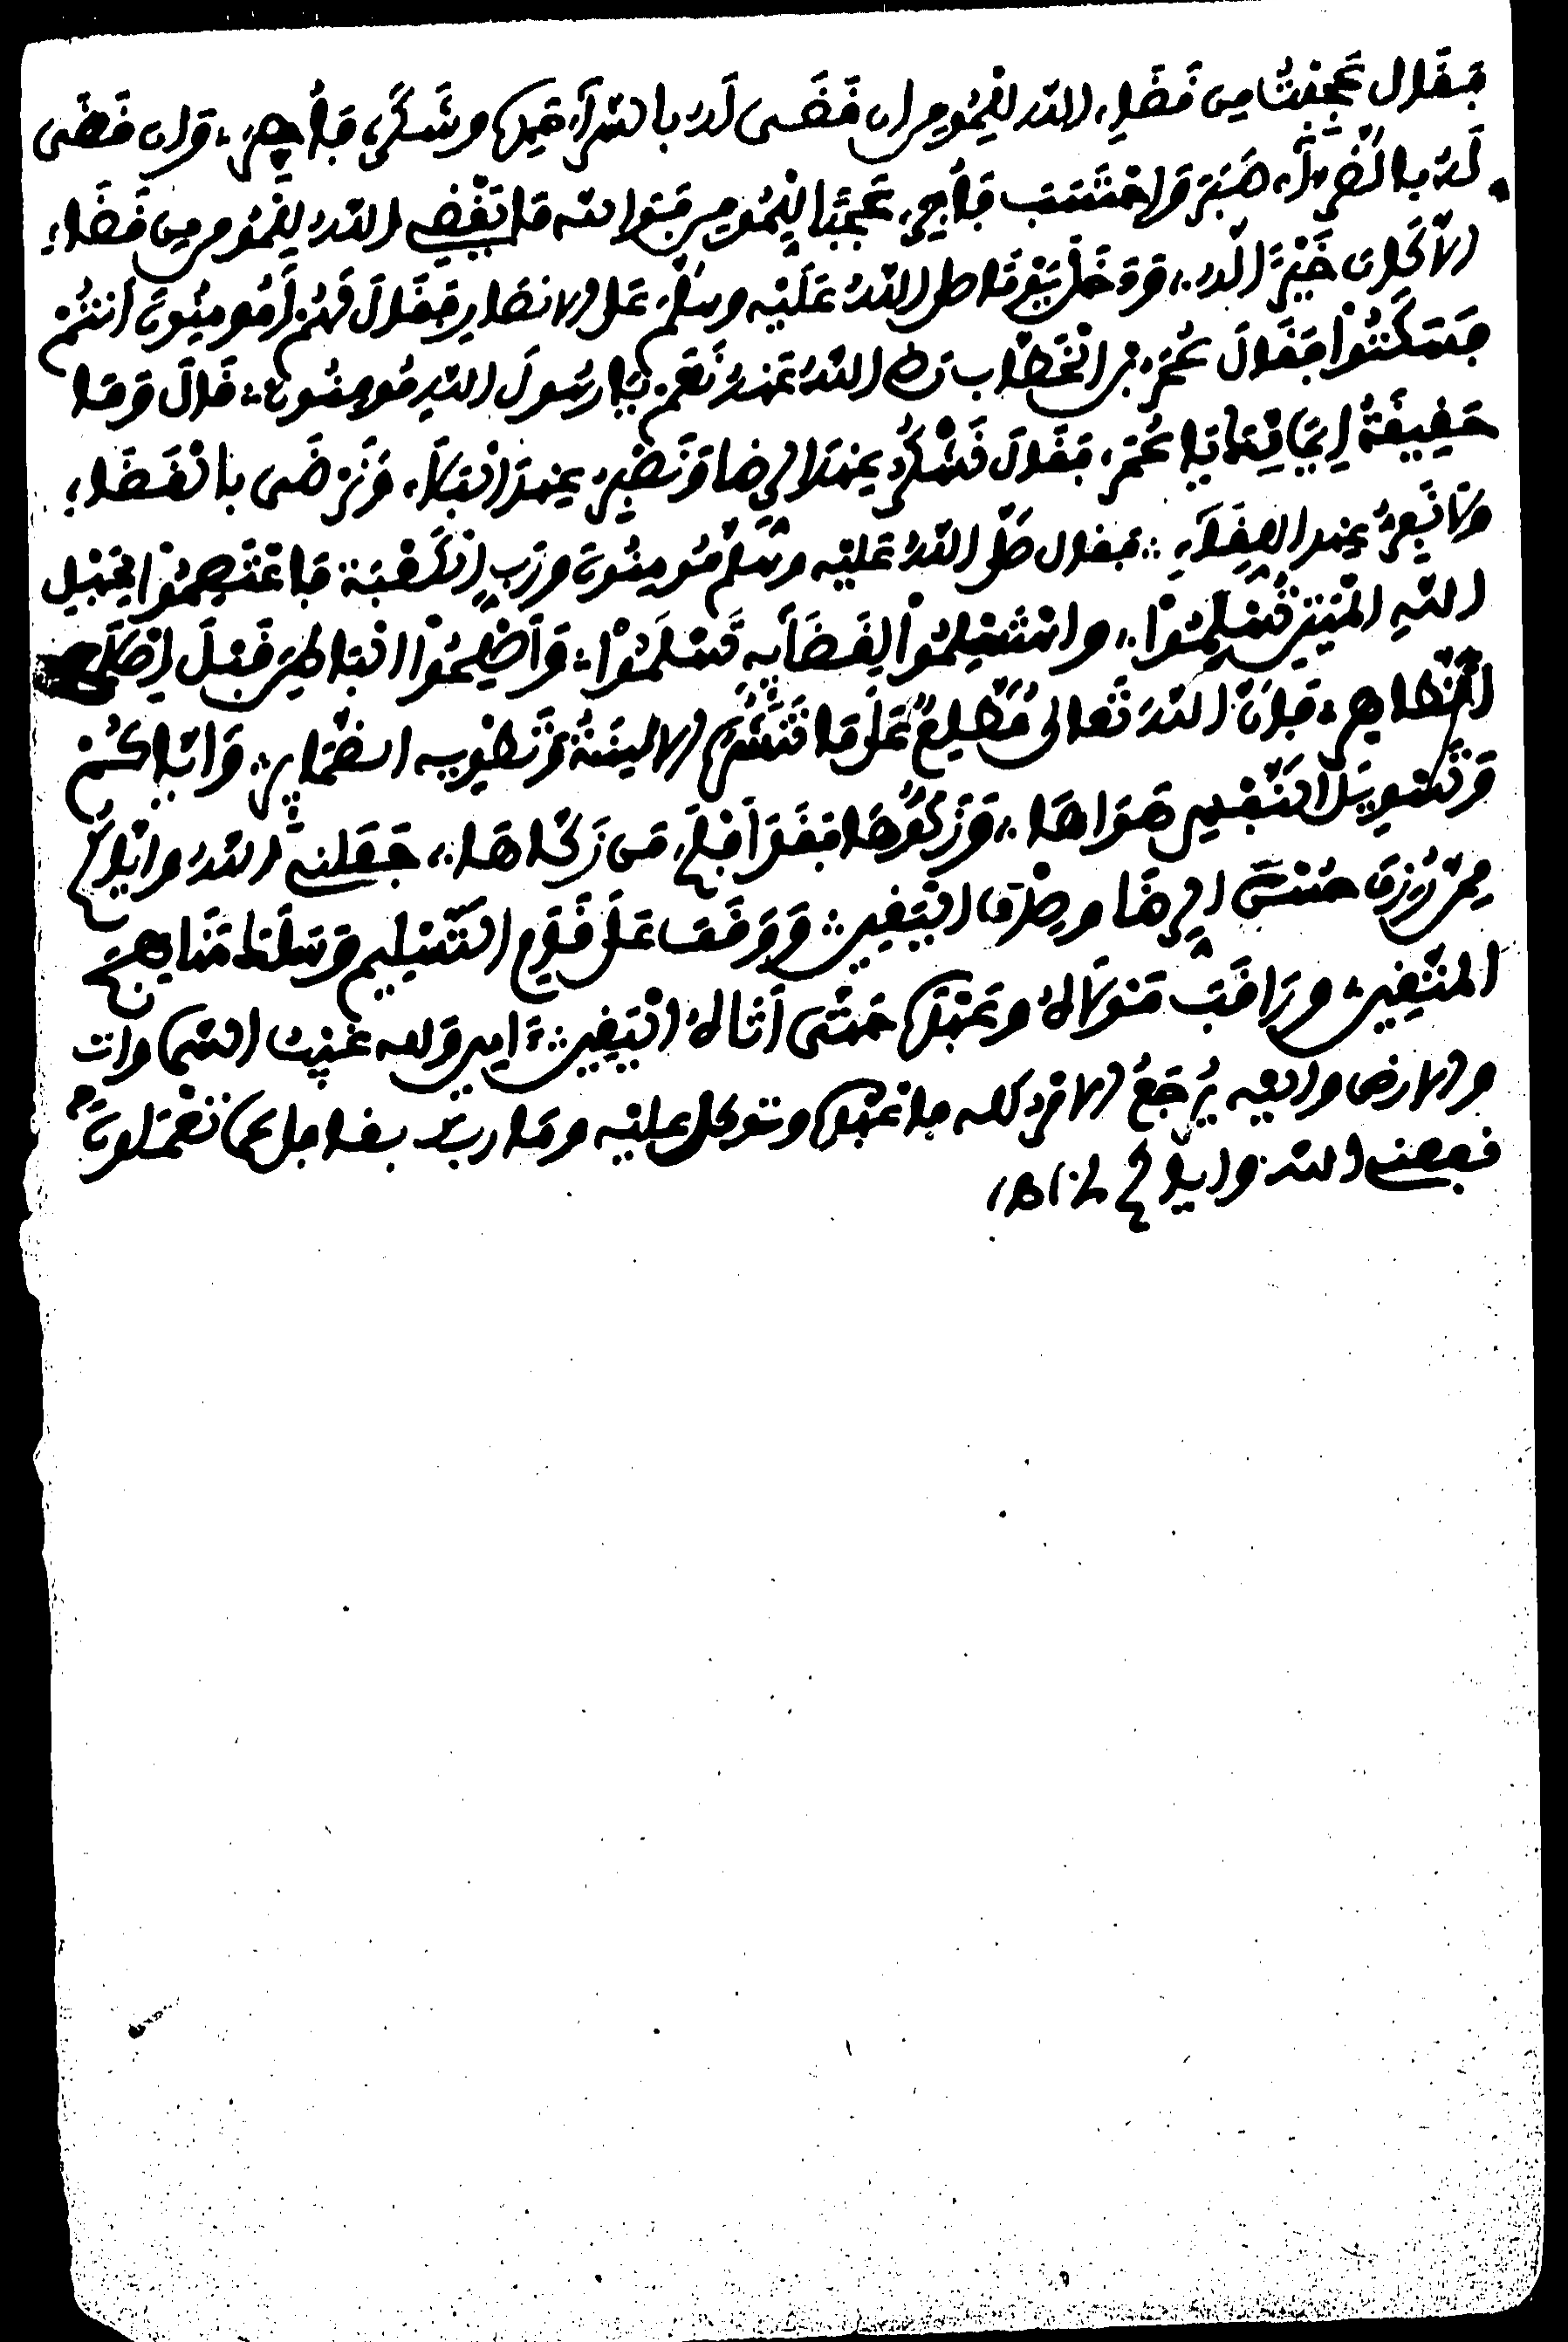 فَقَال عَجِبْتُ مِن قَضَاءِ اللهِ لِلْمُومِن إن قَضَى لَهُ بِالسَّرَّآءِ حَمِدَ وشَكَرَ فَأُجِرَ، وَإن قَضَى
لَهُ بِالضَّرَّآءِ صَبَرَ وَاحْتَسَبَ فَأُجِرَ عَجَبًا لِلْمُومِنِ فَوَاللهِ مَا يَقْضِي اللهُ لِلْمُومِنِ مِن قَضَاءٍ
إِلَّا كَانَ خَيْرًا لَهُ، وَدَخَلَ يَوْمًا صلى اللهُ عَلَيْهِ وسَلَّمَ عَلَى الانصَارِ فَقَالَ لَهُمْ أَمُومِنُونَ أَنتُمْ
فَسَكَتُوا فَقَالَ عُمَرُ بن الْخَطَّاب رضي اللهُ عَنْهُ نَعَمْ يَا رَسُولَ اللهِ مُومِنُونَ: قَالَ وَمَا
حَقِيقَةُ إِيمَانِكُمْ يَا عُمَرُ، فَقَالَ نَشْكُرُ عِندَ الرِّضَا وَنَصْبِرُ عِندَ الْبَلَاءِ وَنَرْضَى بِالْقَضَاءِ
وَلَا نَفِرُّ عِندَ اللِّقَاءِ: فَقَال صَلَّى اللهُ عَلَيْهِ وسَلَّمَ مُومِنُونَ وَرَبِّ الْكَعْبَةِ فَاعْتَصِمُوا بِحَبْلِ
اللهِ الْمَتِينِ تَسْلَمُوا، وَاسْتَسْلِمُوا لِقَضَائِهِ تَسْلَمُوا: وَأَصْلِحُوا الْبَوَاطِنَ قَبْلَ إِصْلَاحِ
الظَّوَاهِرِ، فَإِنَّ اللهَ تَعَالَى مُطَّلِعٌ عَلَى مَا تَنْشُرُهُ الالْسِنَةُ وَتَطْوِيهِ الضَّمَائِرُ: وَإِيَّاكُمْ
وَتَسْوِيلَ النَّفْسِ هَوَاهَا، وَزَكُّوهَا فَقَدْ أَفْلَحَ مَن زَكَّاهَا، جَعَلَنِي اللهُ وَإِيَّاكُمْ
مِمَّنْ رُزِقَ حُسْنَ الرِّضَا وصِدْقَ الْيَقِينِ: وَوَقَفَ عَلَى قَدَمِ التَّسْلِيمِ وَسَلَكَ مَنَاهِجَ
الْمُتَّقِينَ: ورَاقَبَ مَوْلَاهُ وعَبَدَهُ حَتَّى أَتَاهُ الْيَقِينُ: ءَامِين وَلله غَيْبُ السَّمَاوَات
وَالارْضِ وَإليه يُرْجَعُ الامْرُ كله فَاعْبُدْهُ وتوكل عليْه ومَا ربك بغَافِل عَمَّا تَعْمَلُونَ
نفعني الله وإياكم